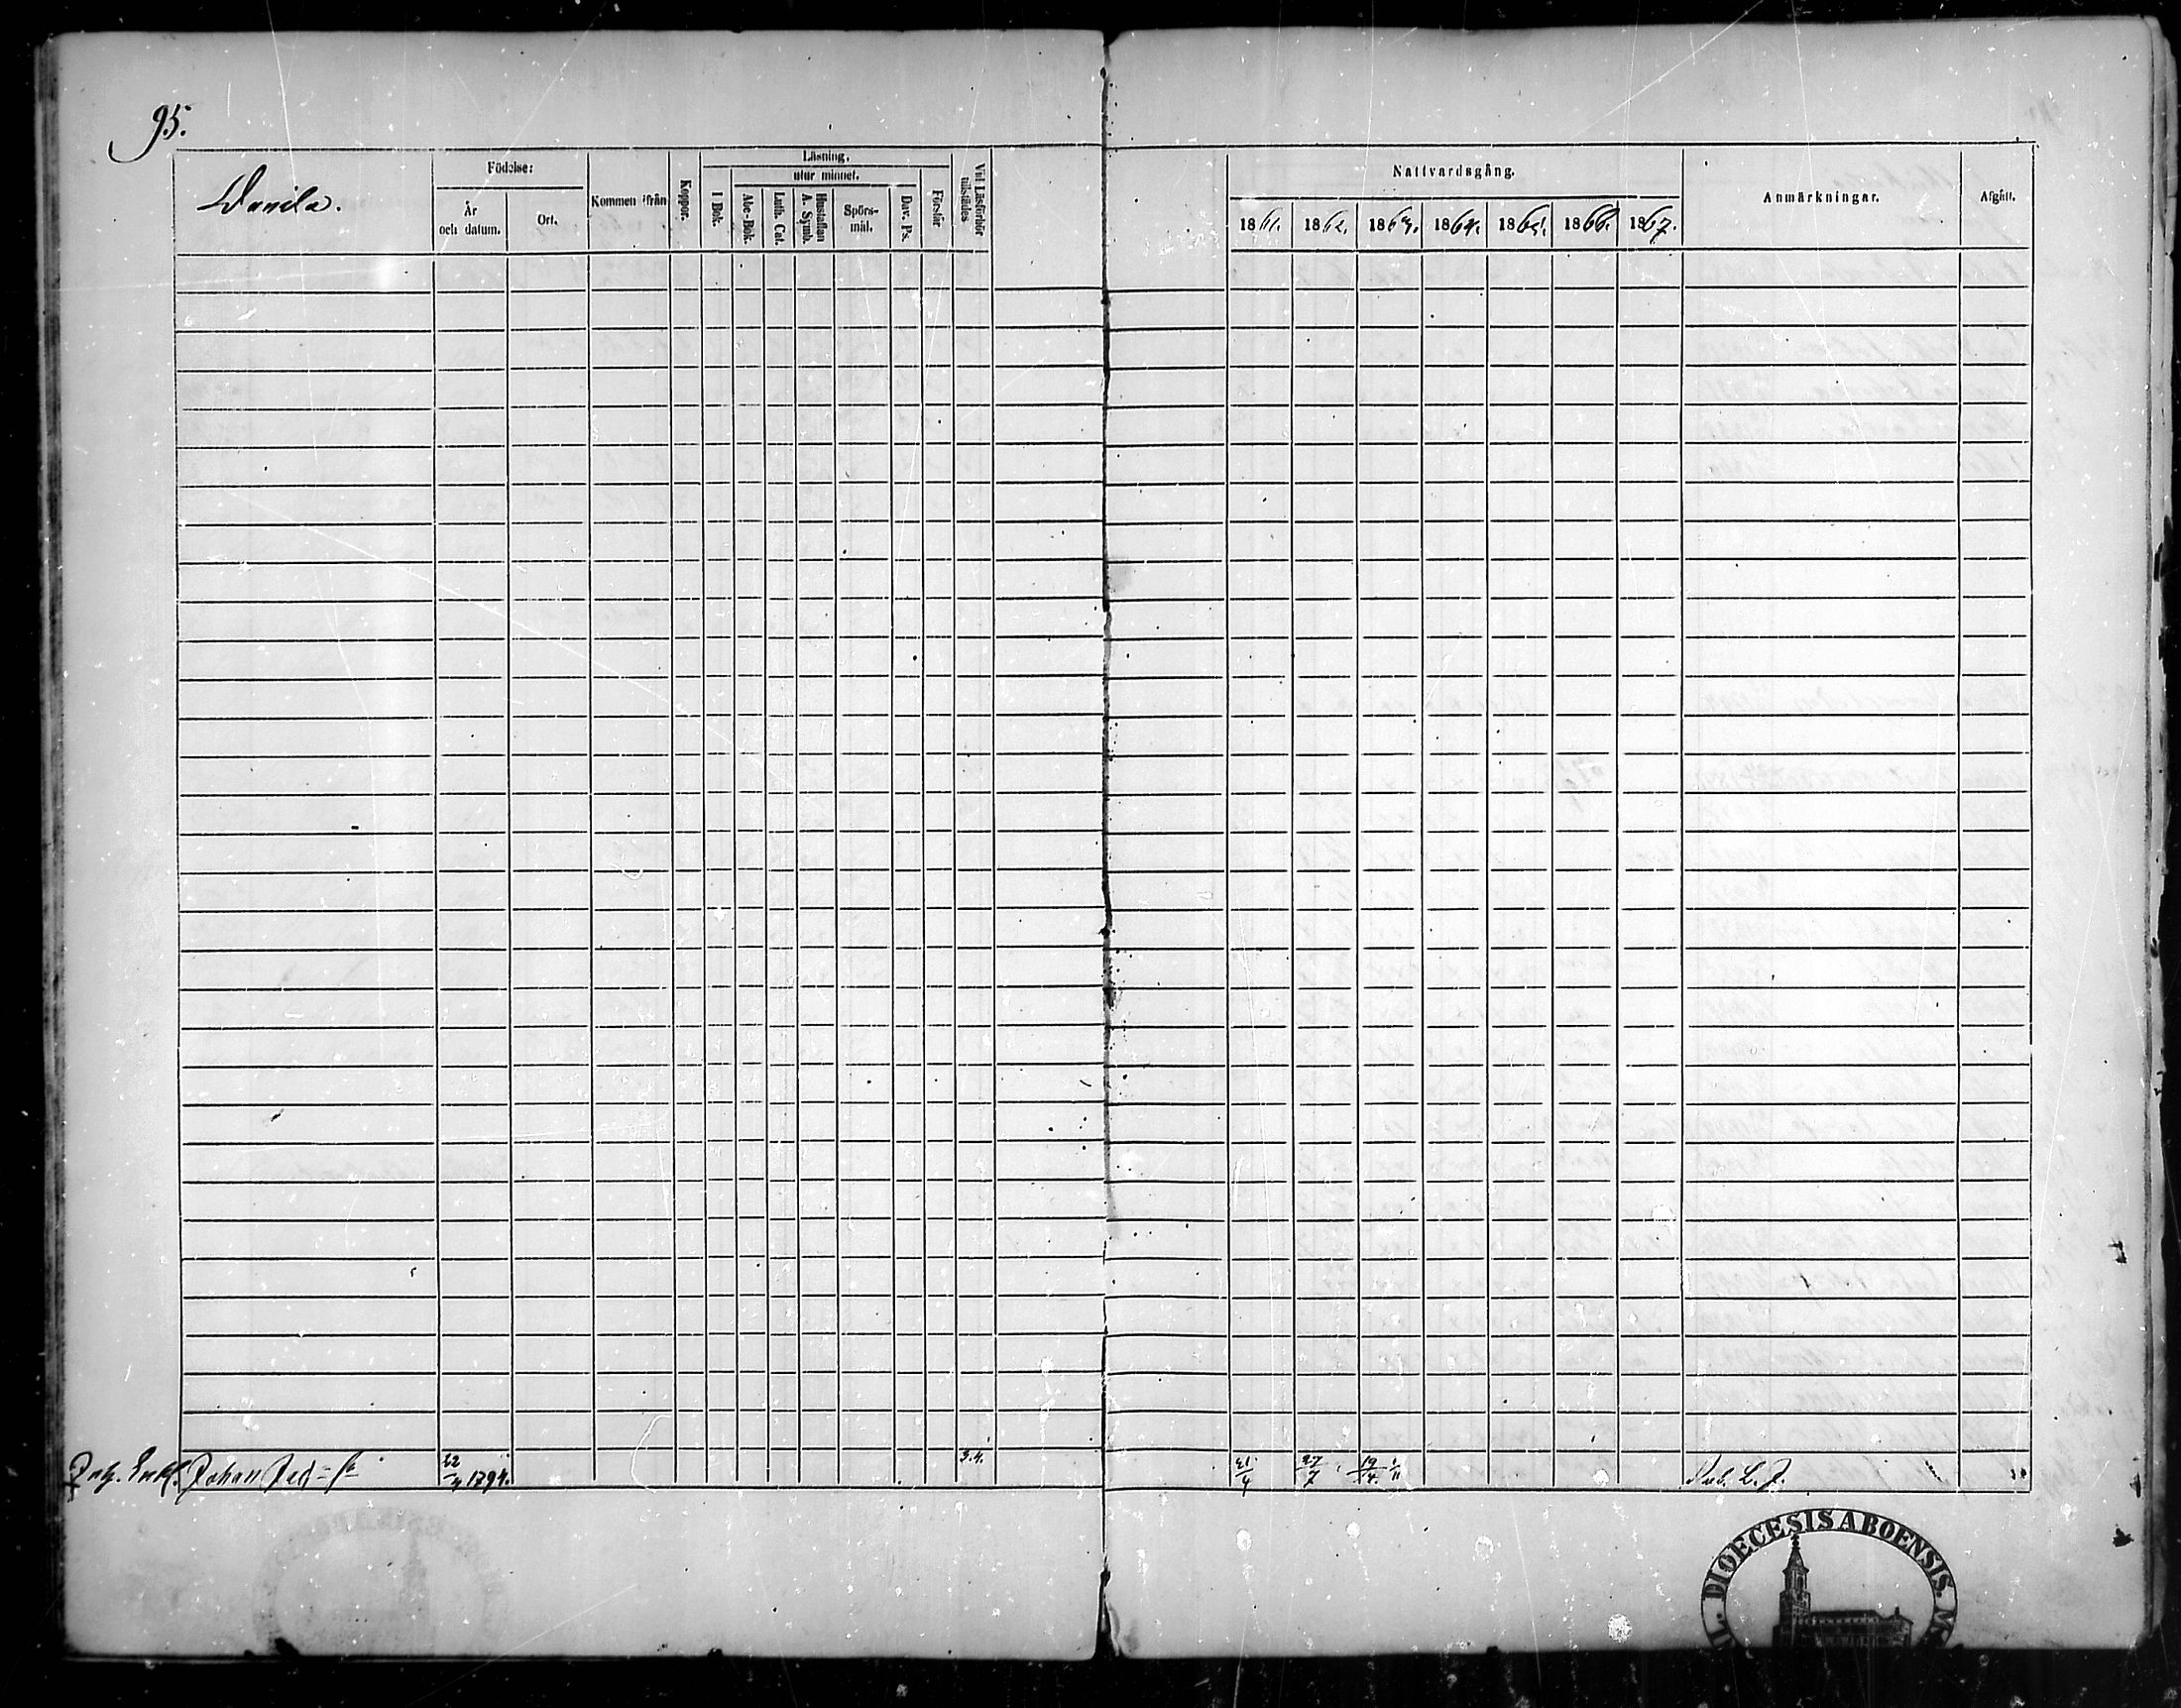 95.
Danila.
Födelse:
År och datum.
Ort.
Kommen ifrån
Koppor.
Läsning.
I Bok.
utur minnet.
Abc-Bok.
Luth. Cat.
Hustaflan A. Symb.
Spörs-mål.
Dav. Ps.
Förstår
Vid Läsförhör tillstädes
Nattvardsgång.
1861. 1862. 1863. 1864. 1865. 1866. 1867.
Anmärkningar.
Afgått.
Johan 1794. 3.4. 27/7 19/4
DIOECESIS ABOENSIS. M